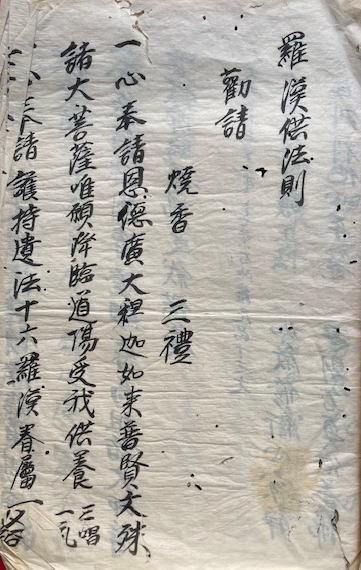 羅漢供法則
勸請
燒香 三禮
一心奉請恩德廣大釋迦如来普賢文殊
諸大菩薩唯願降臨道場受我供養 三唱 一礼
一心奉請護持遺法十六羅漢眷屬一切